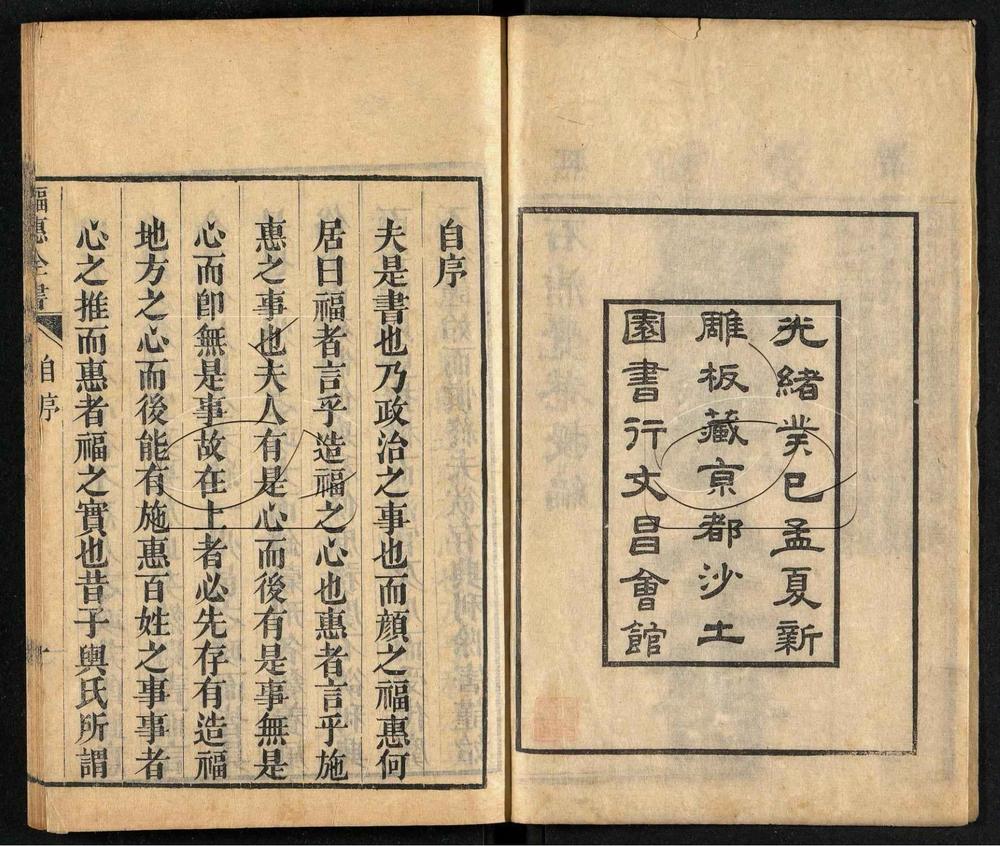 光緒癸巳孟夏新
雕板藏京都沙土
園書行文昌會館
自序
夫是書也乃政治之事也而顔之福惠何
居曰福者言乎造福之心也惠者言乎施
惠之事也夫人有是心而後有是事無是
心而卽無是事故在上者必先存有造福
地方之心而後能有施惠百姓之事事者
心之推而惠者福之實也昔子輿氏所謂
福惠全書
自序